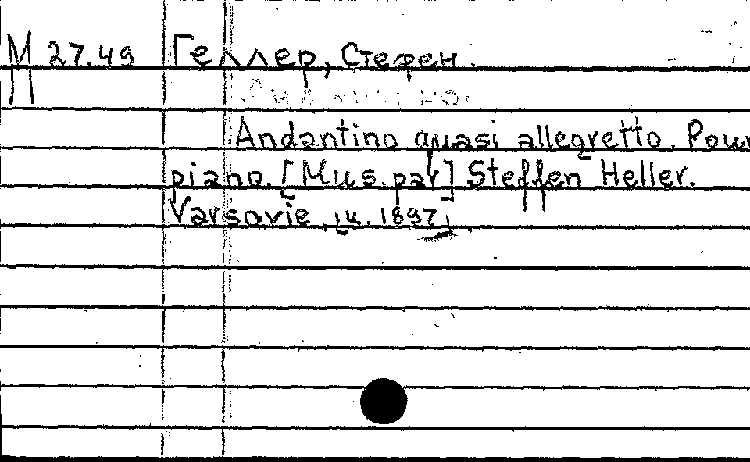 М 27.49 Геллер, Стефен.
Andantino quasi allegretto. Pour
piano. [Mus. par] Steffen Heller.
Varsovie, 1897.